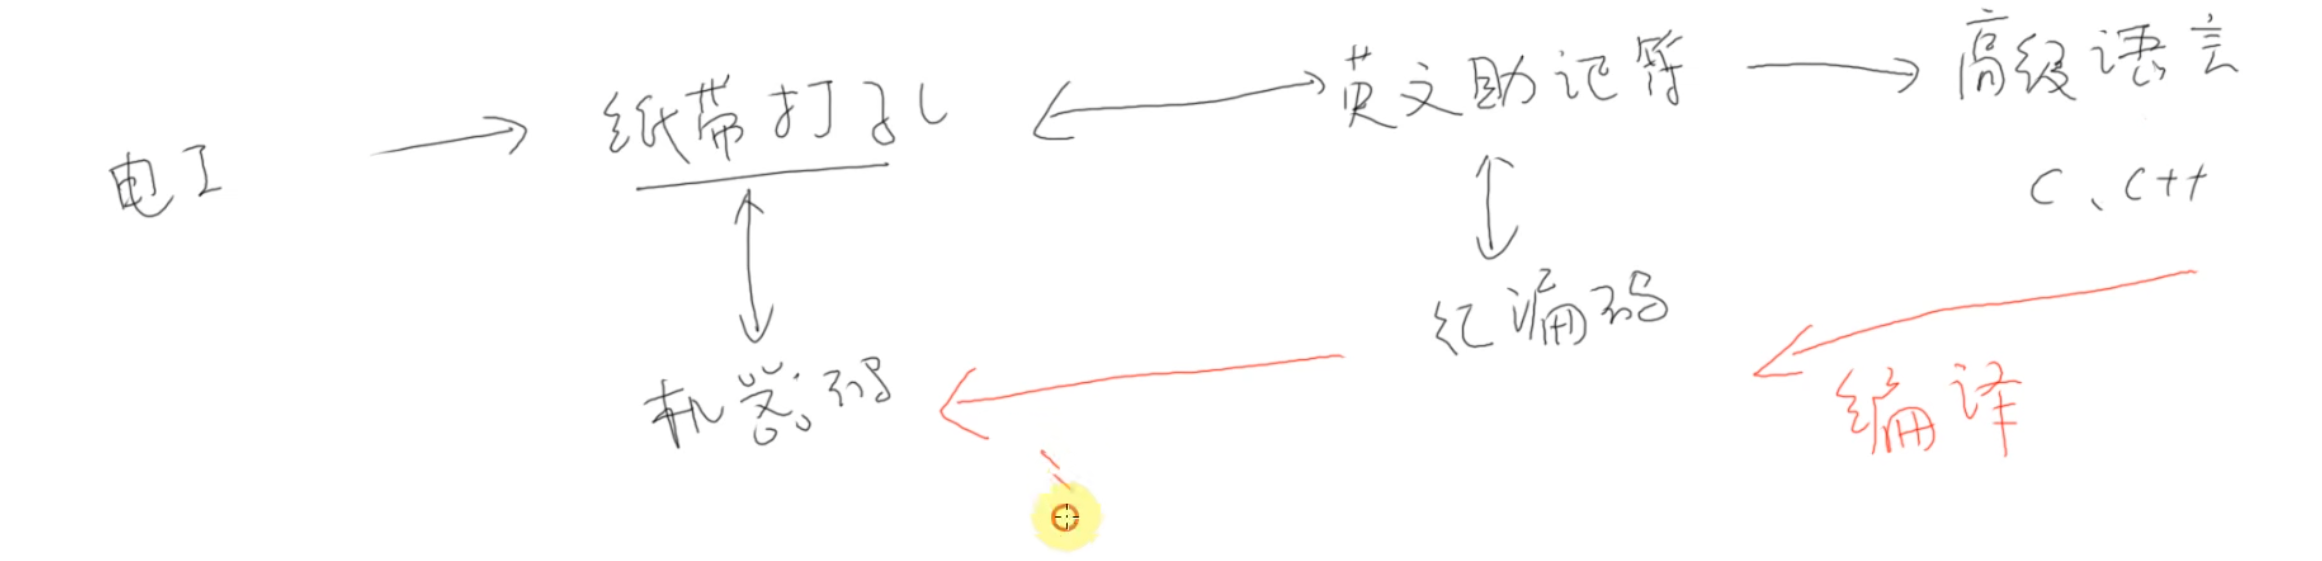 电工 纸带打孔 英文助记符 高级语言
C、C++
汇编码
机器码
编译